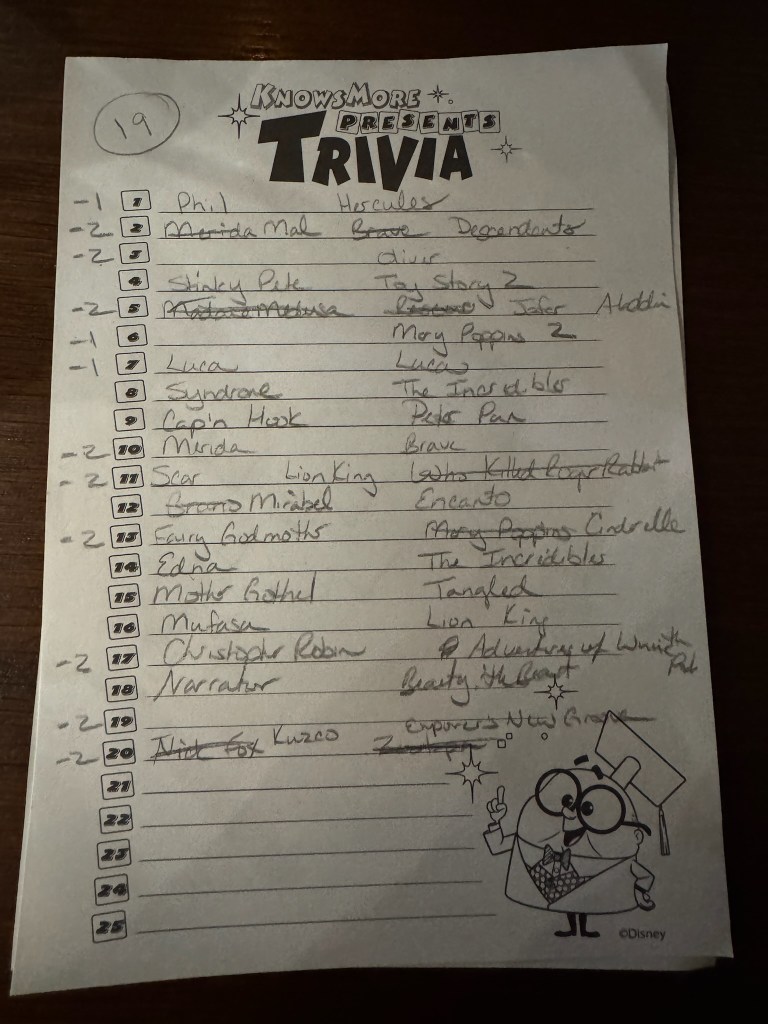 19
KNOWSMORE
PRESENTS
TRIVIA
-1 1 Phil Hercules
-2 2 Merida Mal Brave Decendants
-2 3 Oliver
4 Stinky Pete Toy Story 2
-2 5 Madame Medusa Rescuers Jafar Aladdin
-1 6 Mary Poppins 2
-1 7 Luca Luca
8 Syndrone The Incredibles
9 Cap'n Hook Peter Pan
-2 10 Merida Brave
-2 11 Scar Lion King Who Killed Roger Rabbit
12 Bruno Mirabel Encanto
-2 13 Fairy Godmother Mary Poppins Cindrella
14 Edna The Incredibles
15 Mother Gothel Tangled
16 Mufasa Lion King
-2 17 Christopher Robin Adventures of Winnie th Poh
18 Narrator Beauty ; th Beast
-2 19 Emporer's New Groove
-2 20 Nick Fox Kuzco Zootopia
21
22
23
24
25
©Disney